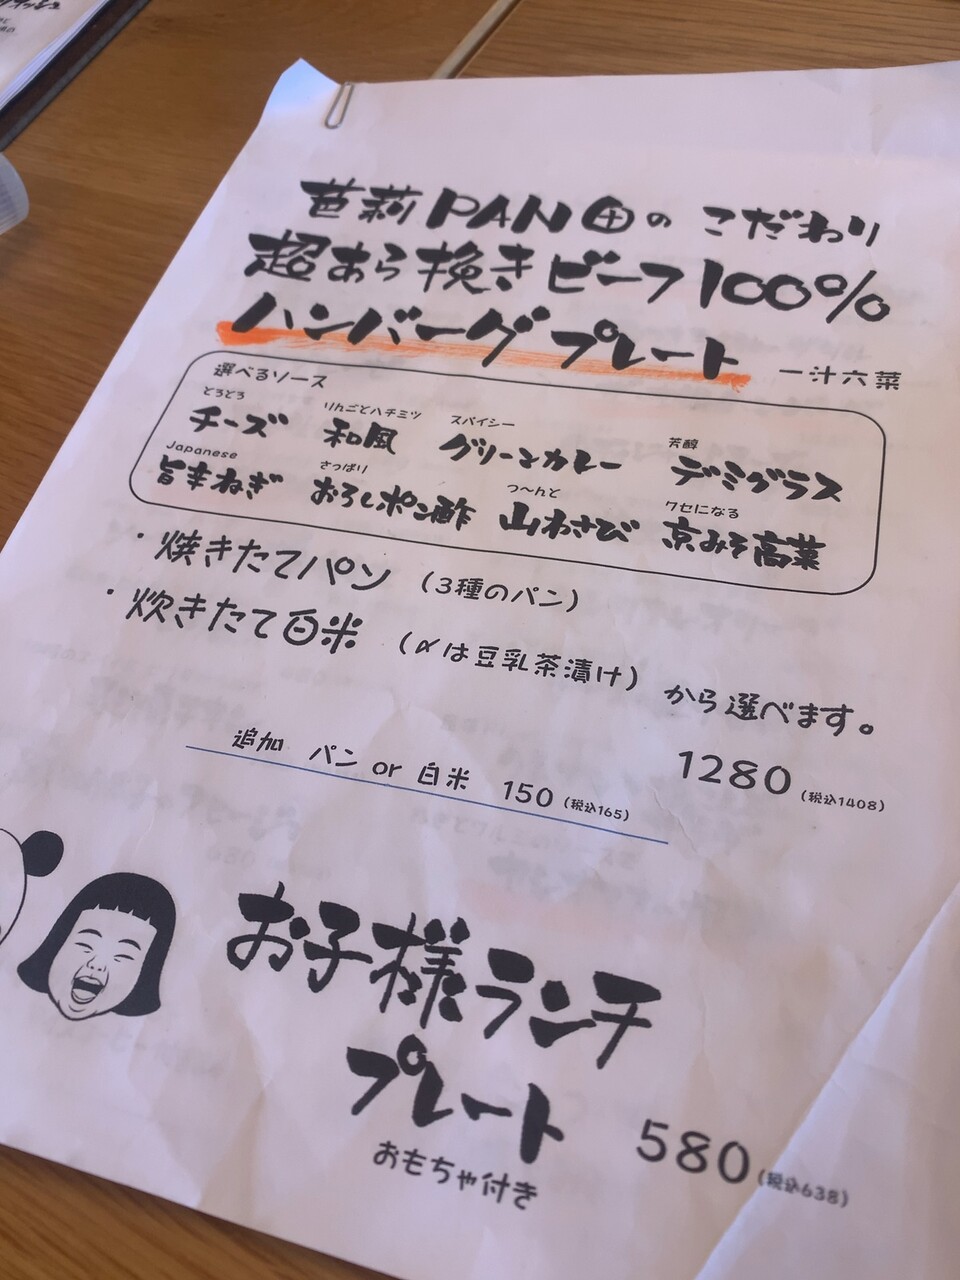 芭莉PAN田の こだわり
超あら挽きビーフ100%
ハンバーグプレート 一汁六菜
選べるソース
とろとろ りんごとハチミツ スパイシー 芳醇
チーズ 和風 グリーンカレー デミグラス
Japanese さっぱり つ〜んと クセになる
旨辛ねぎ おろしポン酢 山わさび 京みそ高菜
・焼きたてパン (3種のパン)
・炊きたて白米 (〆は豆乳茶漬け) から選べます。
1280 (税込1408)
追加 パン or 白米 150 (税込165)
お子様ランチ
プレート
おもちゃ付き
580 (税込638)